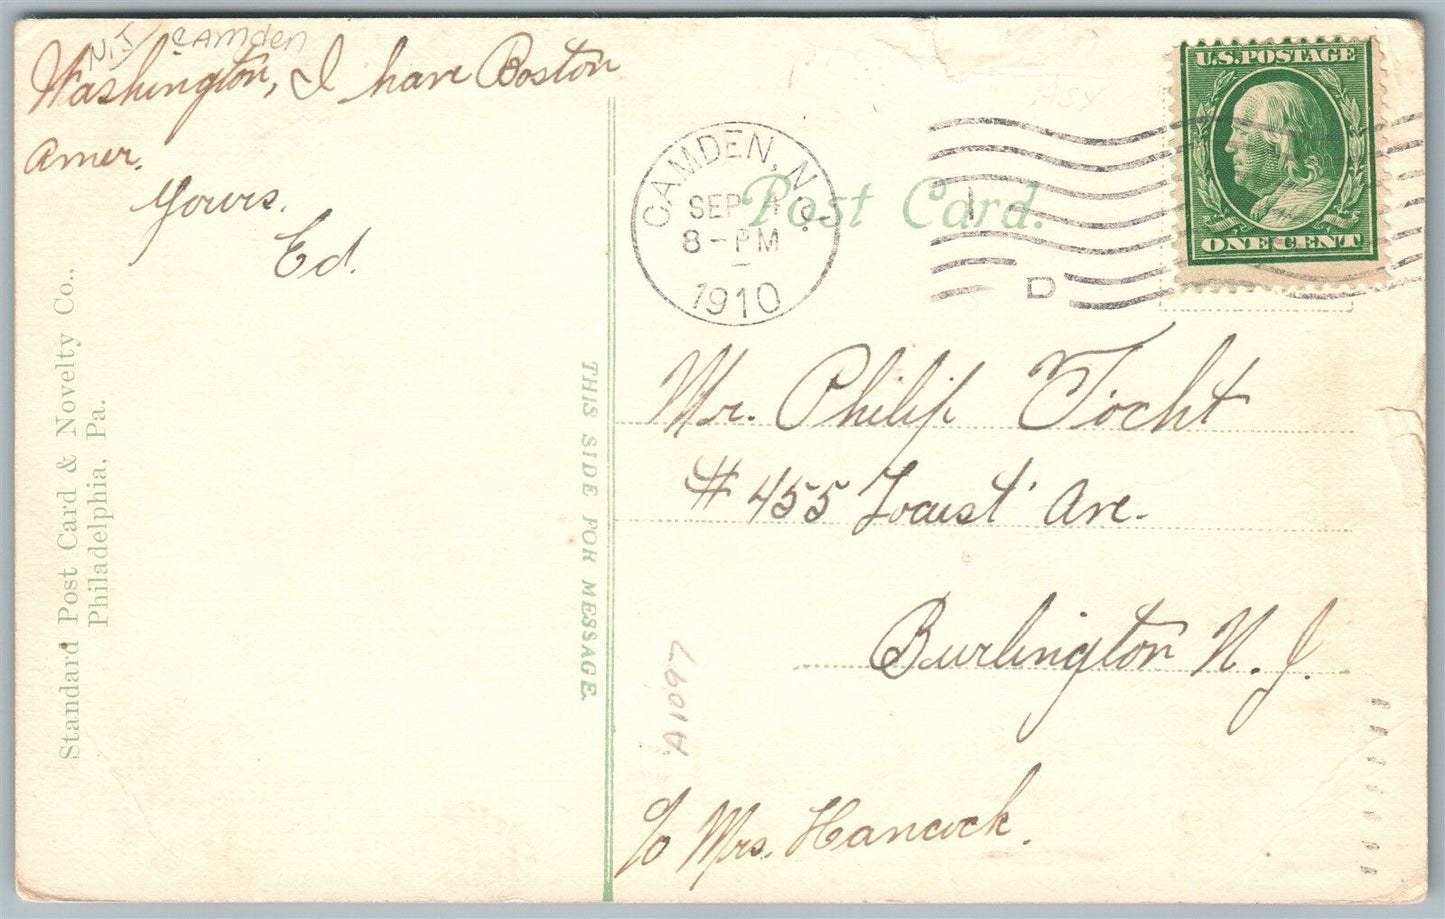 N.J. Camden
Washington, I have Boston
Amer.
Yours.
Ed.
Standard Post Card & Novelty Co.,
Philadelphia, Pa.
THIS SIDE FOR MESSAGE.
Post Card.
CAMDEN, N.J.
SEP
8-PM
1910
1
D
U.S. POSTAGE
ONE CENT
Mr. Philip Tocht
# 455 Locust Ave.
Burlington N. J.
c/o Mrs. Hancock.
A1097